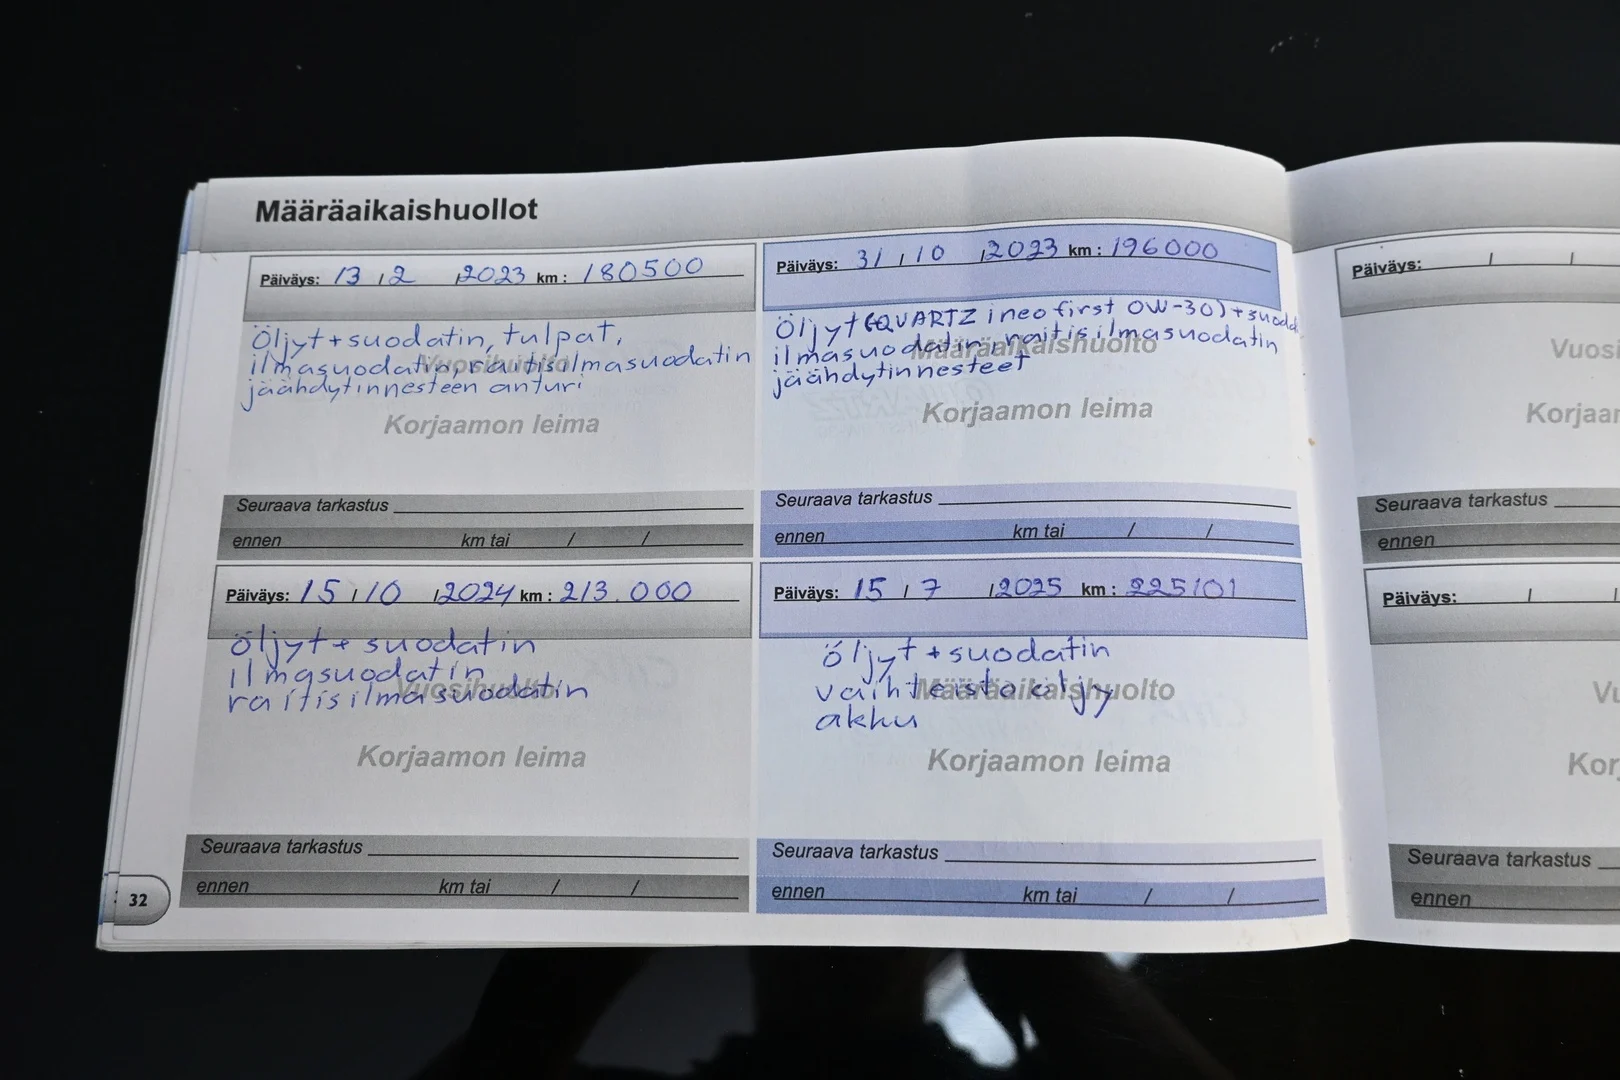 Määräaikaishuollot
Päiväys: 13 / 2 / 2023 km: 180500
Öljyt + suodatin, tulpat,
ilmasuodatin, raitisilmasuodatin
jäähdytinnesteen anturi
Vuosihuolto
Korjaamon leima
Seuraava tarkastus
ennen km tai / /
Päiväys: 31 / 10 / 2023 km: 196000
Öljyt (QUARTZ ineo first 0W-30) + suodat
ilmasuodatin, raitisilmasuodatin
jäähdytinnesteet
Määräaikaishuolto
Korjaamon leima
Seuraava tarkastus
ennen km tai / /
Päiväys: 15 / 10 / 2024 km: 213.000
öljyt + suodatin
ilmasuodatin
raitisilmasuodatin
Vuosihuolto
Korjaamon leima
Seuraava tarkastus
ennen km tai / /
Päiväys: 15 / 7 / 2025 km: 225101
öljyt + suodatin
vaihteistoöljy
akku
Määräaikaishuolto
Korjaamon leima
Seuraava tarkastus
ennen km tai / /
32
Päiväys: / /
Vuosi
Korjaa
Seuraava tarkastus
ennen
Päiväys: / /
Vu
Kor
Seuraava tarkastus
ennen